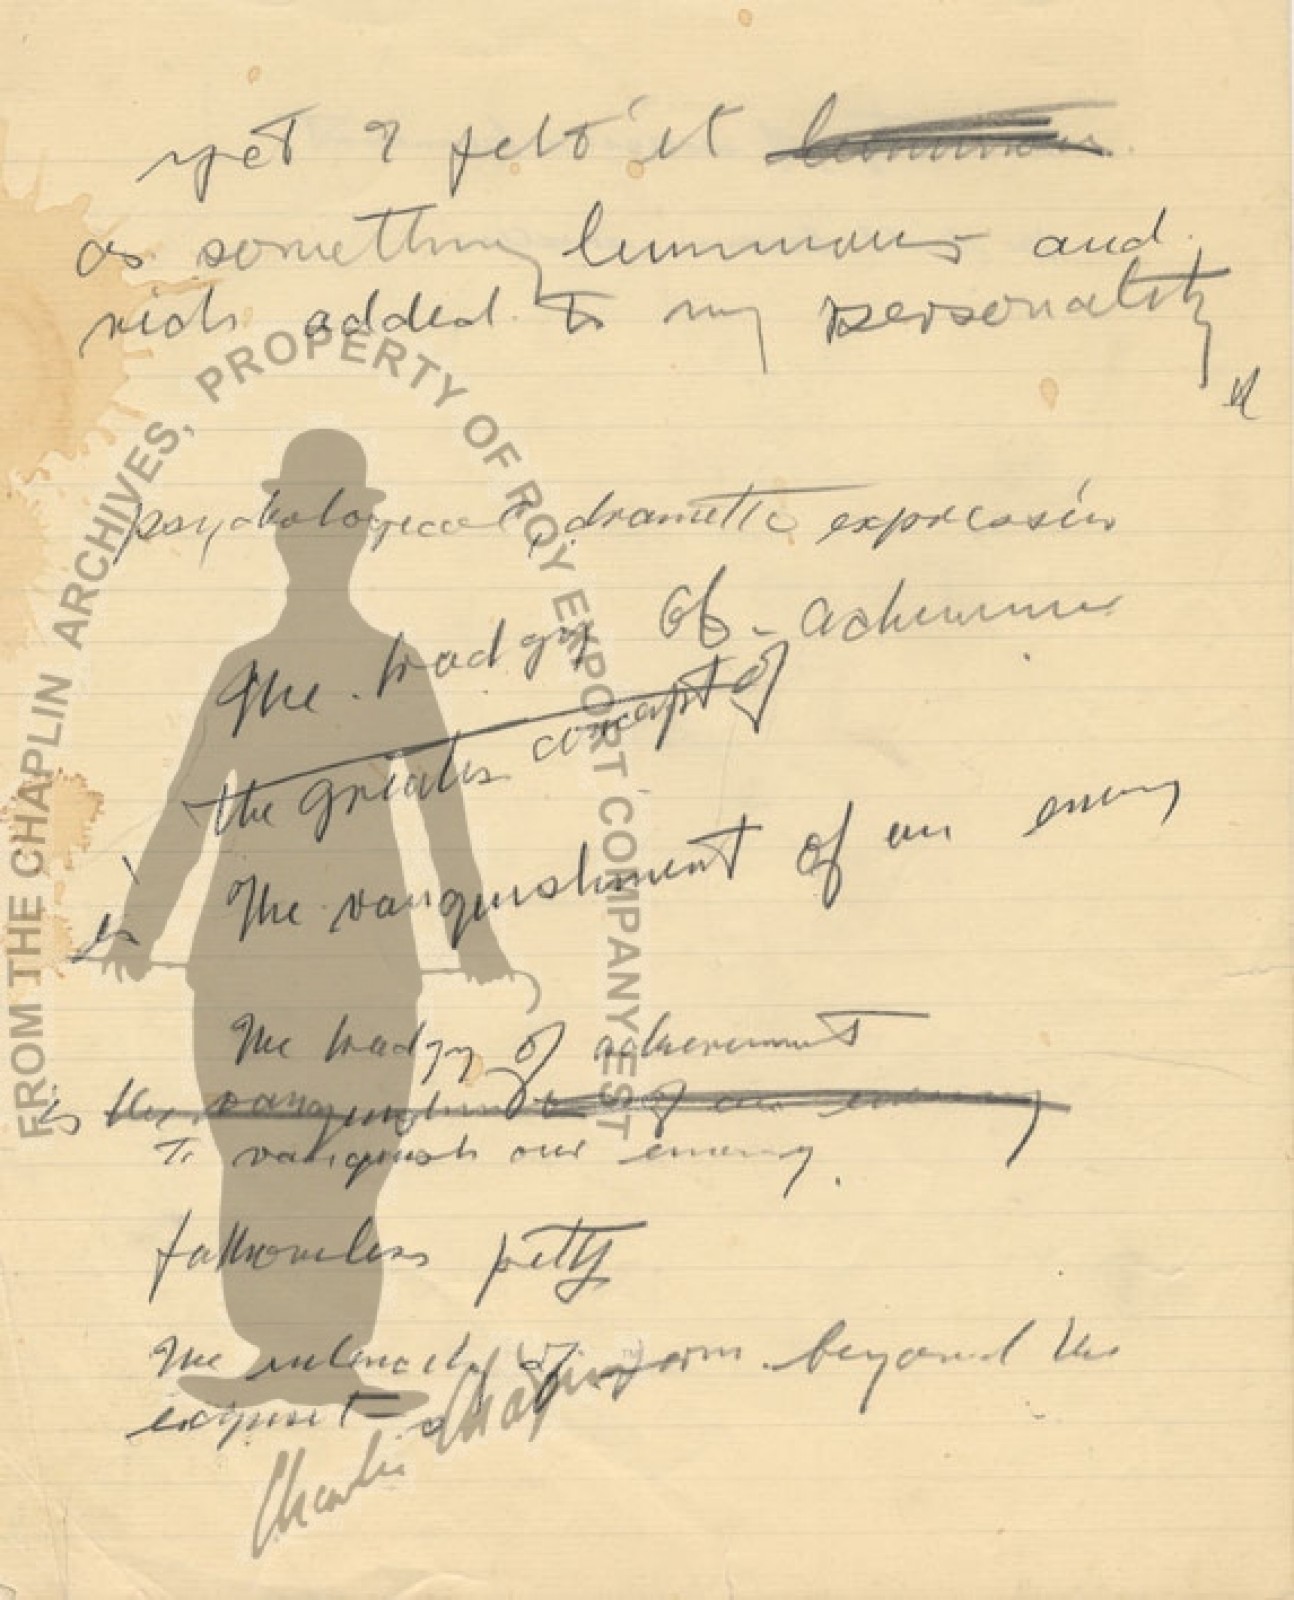 yet I felt it luminous
as something luminous and
rich added to my personality
psychological dramatic expression
The tradgy of
the greates concept of
The vanquishment of an enemy
is
The tradgy of acheivement
is the vanquishment of an enemy
To vanquish our enemy.
fathomless pitty
The of beyond the
exquisit
FROM THE CHAPLIN ARCHIVES, PROPERTY OF ROY EXPORT COMPANY EST
Charlie Chaplin